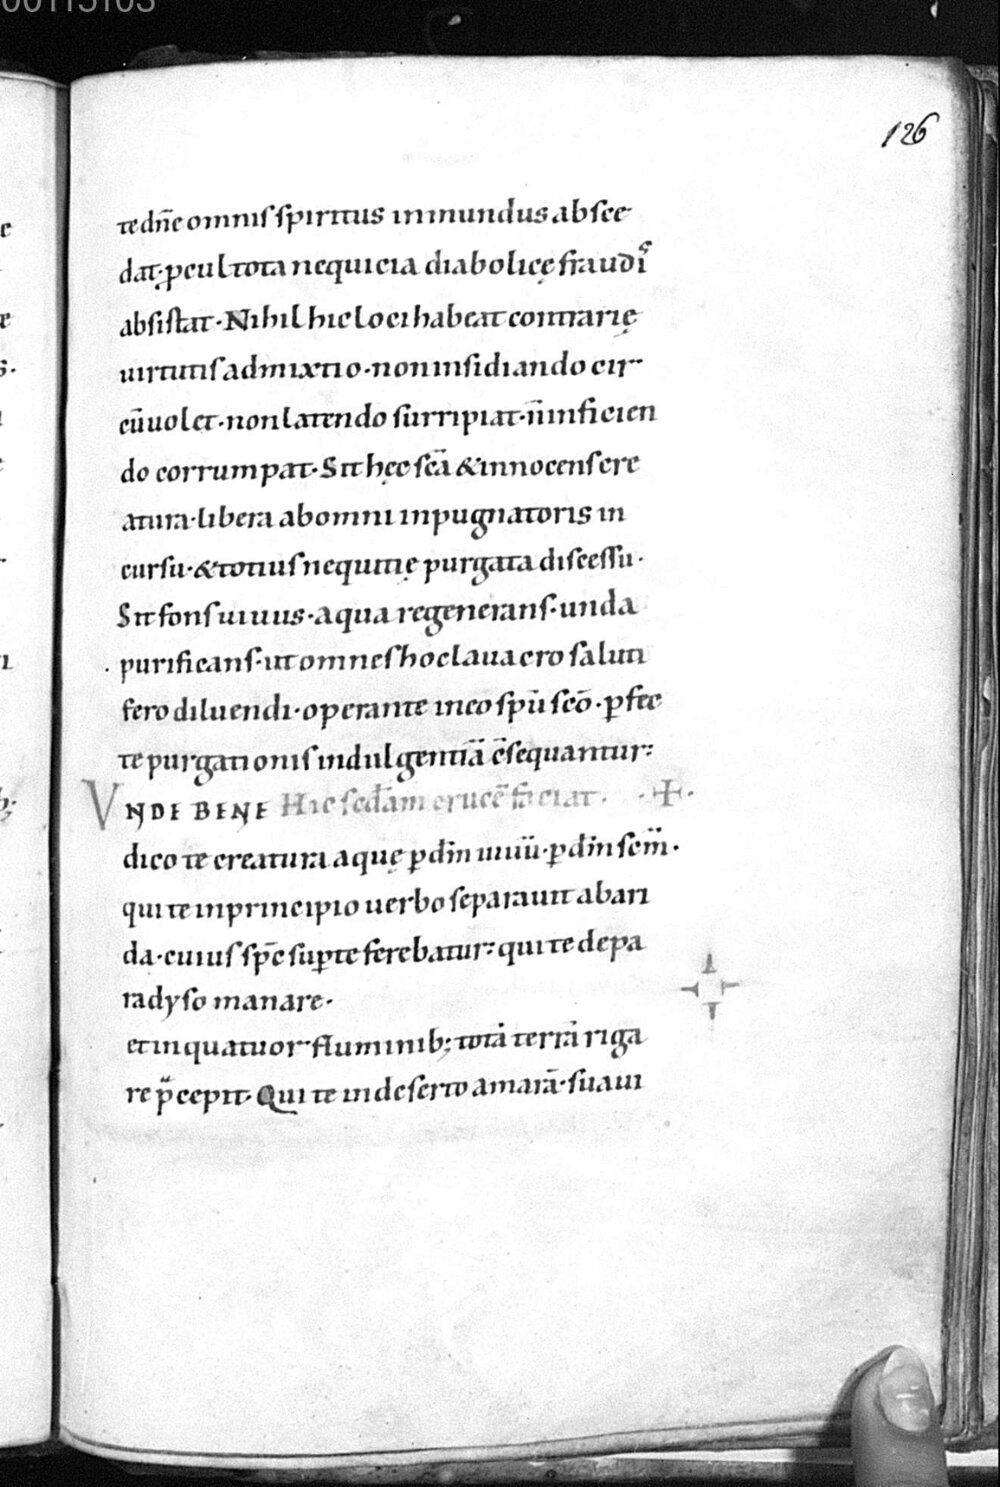 00115103
126
te dn̄e omnis spiritus inmundus absce
dat· ꝓcul tota nequicia diabolicę fraudis
absistat· Nihil hic loci habeat contrarię
uirtutis admixtio· non insidiando cir
cūuolet· non latendo surripiat· n̄ inficien
do corrumpat· Sit hęc scā & innocens cre
atura· libera ab omni inpugnatoris in
cursu· & totius nequitię purgata discessu·
Sit fons uiuus· aqua regenerans· unda
purificans· ut omnes hoc lauacro saluti
fero diluendi· operante in eo spū scō· ꝑfec
te purgationis indulgentiā c̄sequantur:
VNDE BENE Hic scd̄am crucē faciat. ·+·
dico te creatura aquę ꝑ dm̄ uiuū· ꝑ dm̄ scm̄·
qui te in principio uerbo separauit ab ari
da· cuius sp̄c suꝑ te ferebatur: qui te de pa
radyso manare·
et in quatuor fluminib; totā terrā riga
re p̄cepit· Qui te in deserto amarā· suaui